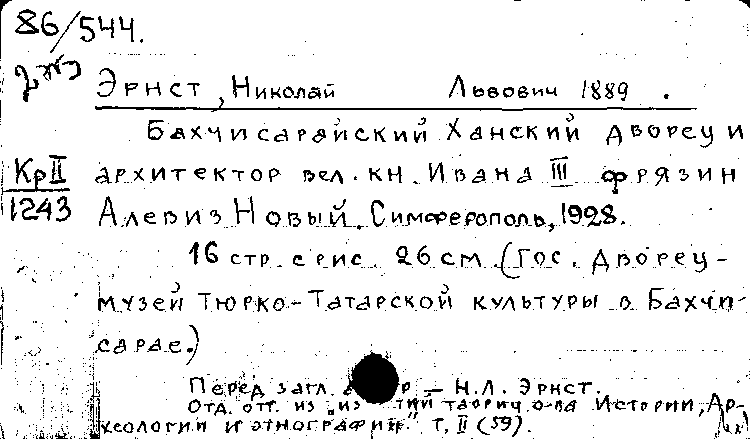 86/544.
2 экз
Эрнст, Николай Львович 1889 .
Бахчисарайский Ханский дворец и
Кр II
архитектор вел. кн. Ивана III фрязин
1243
Алевиз Новый. Симферополь, 1928.
16 стр. с рис. 26 см. (Гос. дворец-
музей Тюрко-Татарской культуры в Бахчи-
сарае.)
Перед загл. — Н.Л. Эрнст.
Отд. отт. из „ таврич. о-ва Истории, Ар-
хеологии и этнографии". Т. II (59).